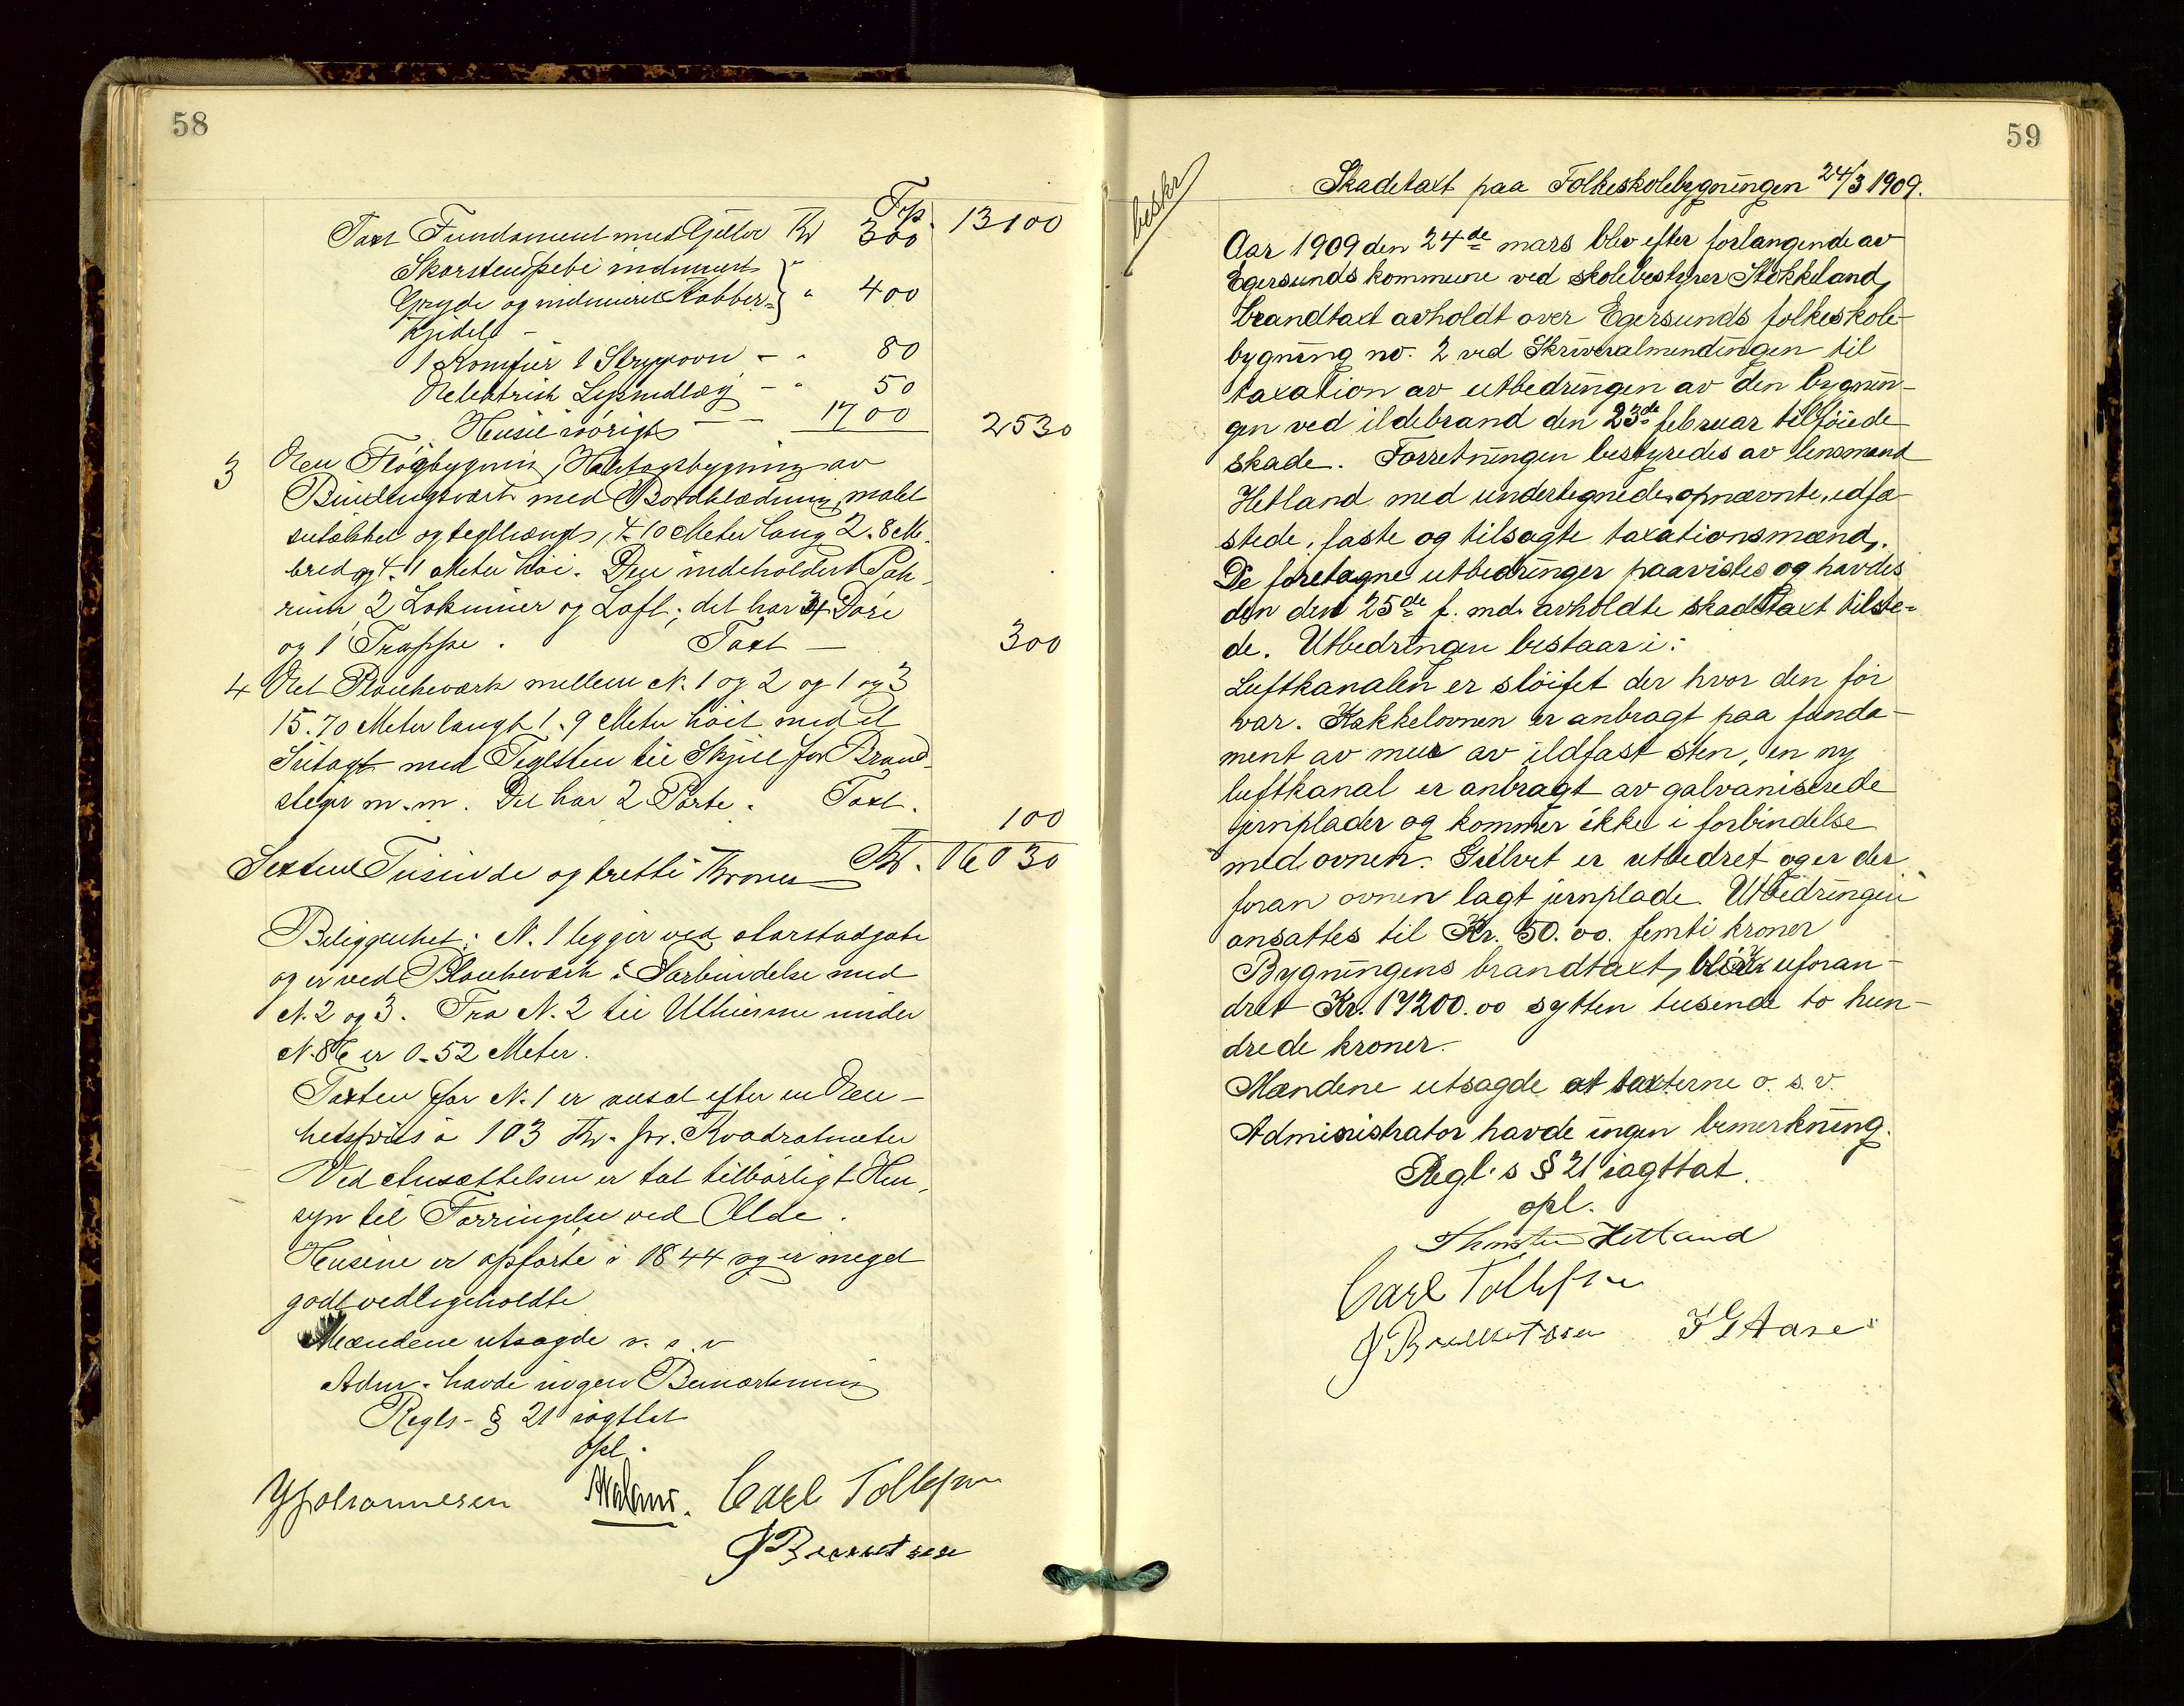 58
Trp. 13100
Taxt Fundament med Gjelder Kr 300
Skorstenspibe indmuret
Gryde og indmuret Kobber- } " 400
Kjedel -
1 Komfur 1 Strygovn - " 80
Elektrisk Lysindlæg - " 50
Huset iøvrigt - - 1700 2530
3 En Fløgbygning, Halvtagsbygning av
Bindingsværk med Bordklædning, malet
sutækket og teglhængt, 4.10 Meter lang 2.8 M.
bred og 4.1 Meter høi. Den indeholder 1 Pak-
rum 2 Lokummer og Loft; det har 4 Døre
og 1 Trappe. Taxt — 300
4 Et Plankeværk mellem N. 1 og 2 og 1 og 3
15.70 Meter langt 1.9 Meter høit med et
med Teglsten til Skjul for Brand-
stiger m.m. Det har 2 Porte. Taxt. 100
Sexten Tusinde og tretti Kroner Kr. 16030
Beliggenhet: N. 1 ligger ved Aarstadgate
og er ved Plankeværk i Forbindelse med
N. 2 og 3. Fra N. 2 til Uthusene under
N. 86 er 0.52 Meter.
Taxten for N. 1 er ansat efter en En-
hetspris à 103 Kr. pr. Kvadratmeter
Ved Ansættelsen er tat tilbørligt Hen-
syn til Forringelse ved Ælde.
Husene er opførte i 1844 og er meget
godt vedligeholdte
Mændene utsagde o. s. v
Adm. havde ingen Bemærkning
Regls. § 21 iagttat
opl.
Y Johannesen Carl Tollefsen
59
beskr
Skadetaxt paa Folkeskolebygningen 24/3 1909.
Aar 1909 den 24de mars blev efter forlangende av
Egersunds kommune ved skolebestyrer Stokkeland,
brandtaxt avholdt over Egersunds folkeskole-
bygning no. 2 ved Skriveralmendingen til
taxation av utbedringen av den bygnin-
gen ved ildebrand den 23de februar tilføiede
skade. Forretningen bestyredes av lensmand
Hetland med undertegnede, opnævnte, edfæ-
stede, faste og tilsagte taxationsmænd.
De foretagne utbedringer paavistes og havdes
den den 25de f. md. avholdte skadetaxt tilste-
de. Utbedringen bestaar i:
Luftkanalen er sløifet der hvor den før
var. Kakkelovnen er anbragt paa funda-
ment av mur av ildfast sten, en ny
luftkanal er anbragt av galvaniserede
jernplader og kommer ikke i forbindelse
med ovnen. Gulvet er utbedret og er der
foran ovnen lagt jernplade. Utbedringen
ansattes til Kr. 50.00. femti kroner
Bygningens brandtaxt, blir uforan-
dret Kr. 17200.00 sytten tusende to hun-
drede kroner.
Mændene utsagde at taxterne o. s. v.
Administrator havde ingen bemerkning.
Regl.s § 21 iagttat.
opl.
Thorsten Hetland
Carl Tollefsen
I G Aase